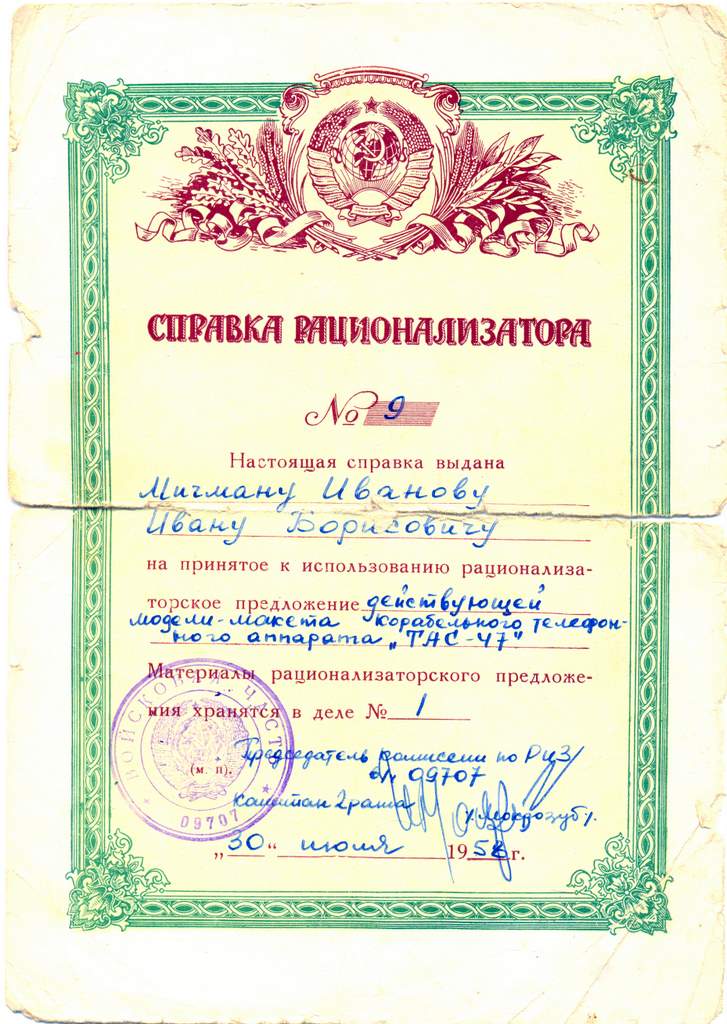 СПРАВКА РАЦИОНАЛИЗАТОРА
№ 9
Настоящая справка выдана
Мичману Иванову
Ивану Борисовичу
на принятое к использованию рационализа-
торское предложение действующей
модели-макета корабельного телефон-
ного аппарата „ТАС-47"
Материалы рационализаторского предложе-
ния хранятся в деле № 1
Председатель комиссии по
09707
(м. п).
Капитан 2 ранга
ВОЙСКОВАЯ ЧАСТЬ
09707
„30" июля 195 г.